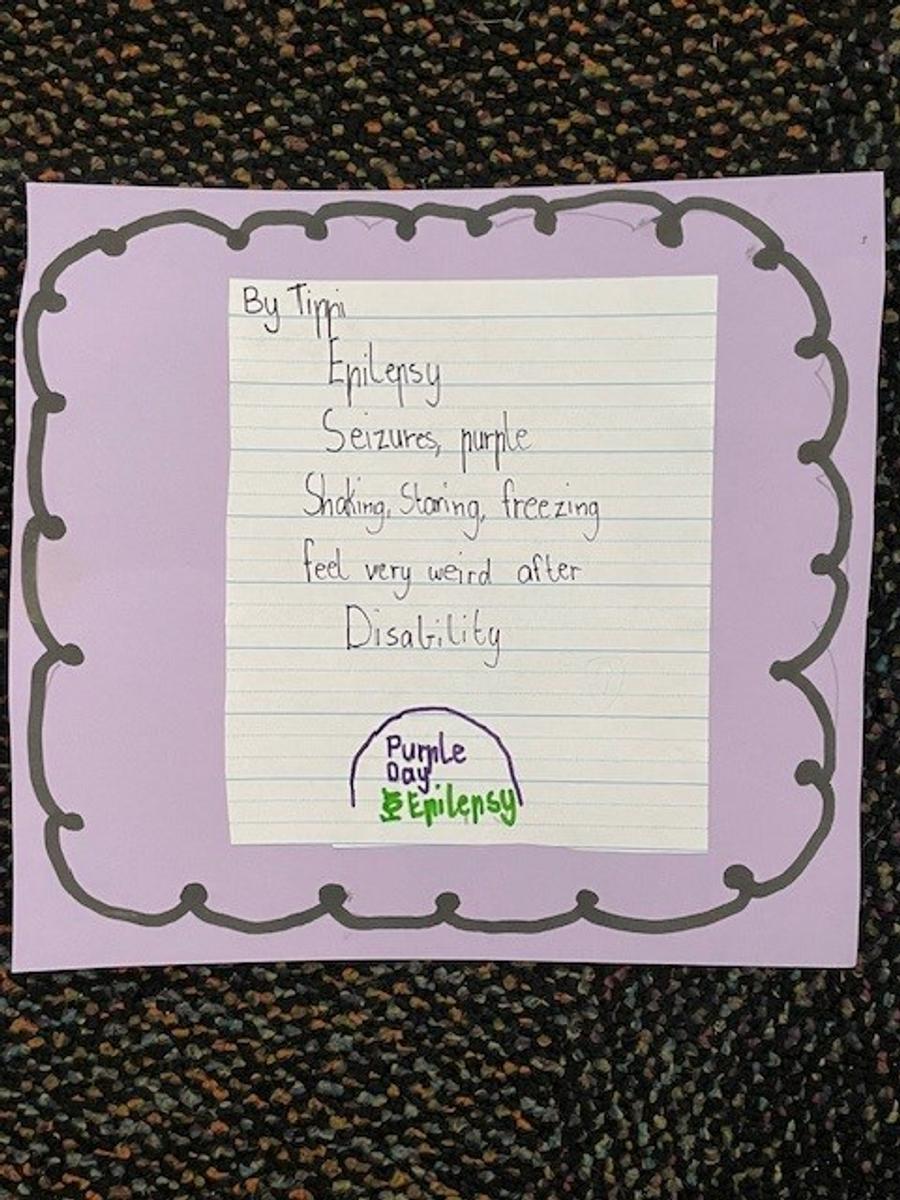 By Tippi
Epilepsy
Seizures, purple
Shaking, Staring, freezing
feel very weird after
Disability
Purple
Day
Epilepsy